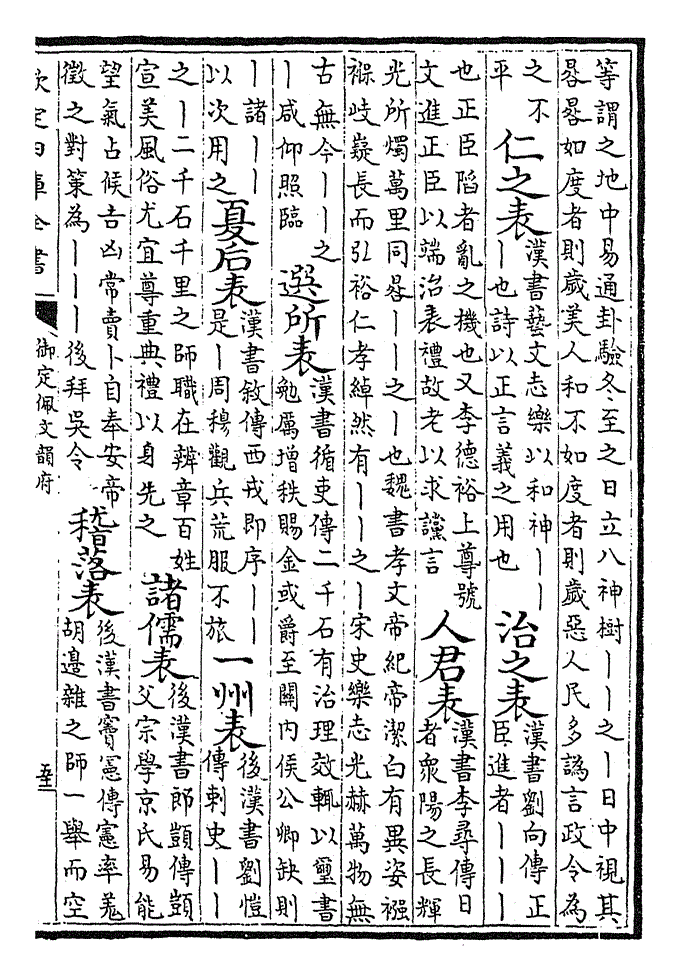 等謂之地中易通卦驗冬至之日立八神樹丨丨之丨日中視其
晷晷如度者則歲美人和不如度者則歲惡人民多譌言政令為
之不
平
仁之表
漢書藝文志樂以和神丨丨
丨也詩以正言義之用也
治之表
漢書劉向傳正
臣進者丨丨丨
也正臣陷者亂之機也又李德裕上尊號
文進正臣以端治表禮故老以求讜言
人君表
漢書李尋傳日
者衆陽之長輝
光所燭萬里同晷丨丨之丨也魏書孝文帝紀帝潔白有異姿襁
褓岐嶷長而引裕仁孝綽然有丨丨之丨宋史樂志光赫萬物無
古無今丨丨之
丨咸仰照臨
選所表
漢書循吏傳二千石有治理效輒以璽書
勉厲增秩賜金或爵至關内侯公卿缺則
丨諸丨丨
以次用之
夏后表
漢書敘傳西戎即序丨丨
是丨周穆觀兵荒服不旅
一州表
後漢書劉愷
傳刺史丨丨
之丨二千石千里之師職在辨章百姓
宣美風俗尤宜尊重典禮以身先之
諸儒表
後漢書郎顗傳顗
父宗學京氏易能
望氣占候吉凶常賣卜自奉安帝
徵之對策為丨丨丨後拜吳令
稽落表
後漢書竇憲傳憲率羌
胡邊雜之師一舉而空
欽定四庫全書
御定佩文韻府